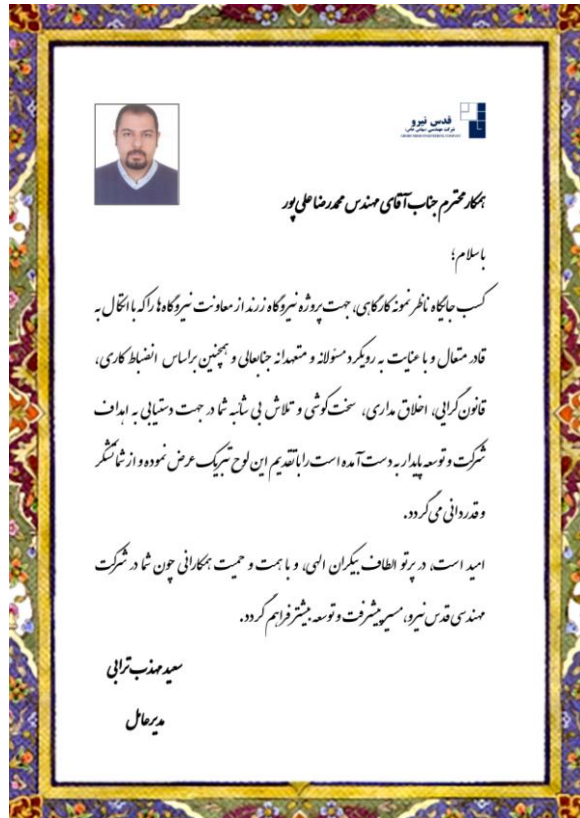 قدس نیرو
شرکت مهندسی (سهامی خاص)
همکار محترم جناب آقای مهندس محمدرضا علی پور
باسلام؛
کسب جایگاه ناظر نمونه کارگاهی، جهت پروژه نیروگاه زرند از معاونت نیروگاه ها را که با اتکال به
قادر متعال و با عنایت به رویکرد مسئولانه و متعهدانه جنابعالی و همچنین براساس انضباط کاری،
قانون گرایی، اخلاق مداری، سخت کوشی و تلاش بی شائبه شما در جهت دستیابی به اهداف
شرکت و توسعه پایدار به دست آمده است را با تقدیم این لوح تبریک عرض نموده و از شما تشکر
و قدردانی می گردد.
امید است، در پرتو الطاف بیکران الهی، و با همت و حمیت همکارانی چون شما در شرکت
مهندسی قدس نیرو، مسیر پیشرفت و توسعه بیشتر فراهم گردد.
سعید مهذب ترابی
مدیرعامل